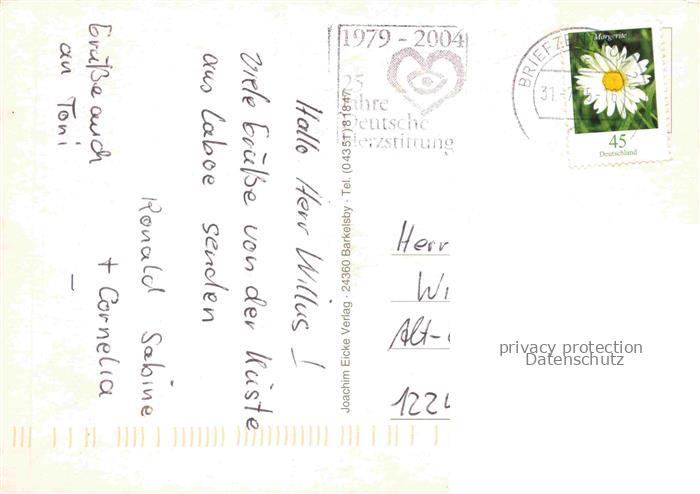 Hallo Herr Willus!
Viele Grüße von der Küste
aus Laboe senden
Ronald Sabine
+ Cornelia
Grüße auch
an Toni
Joachim Eicke Verlag · 24360 Barkelsby · Tel. (04351) 81847
1979 - 2004
25
Jahre
Deutsche
Herzstiftung
BRIEFZE
Margerite
45
Deutschland
Herr
Wi
Alt-
1224
privacy protection
Datenschutz